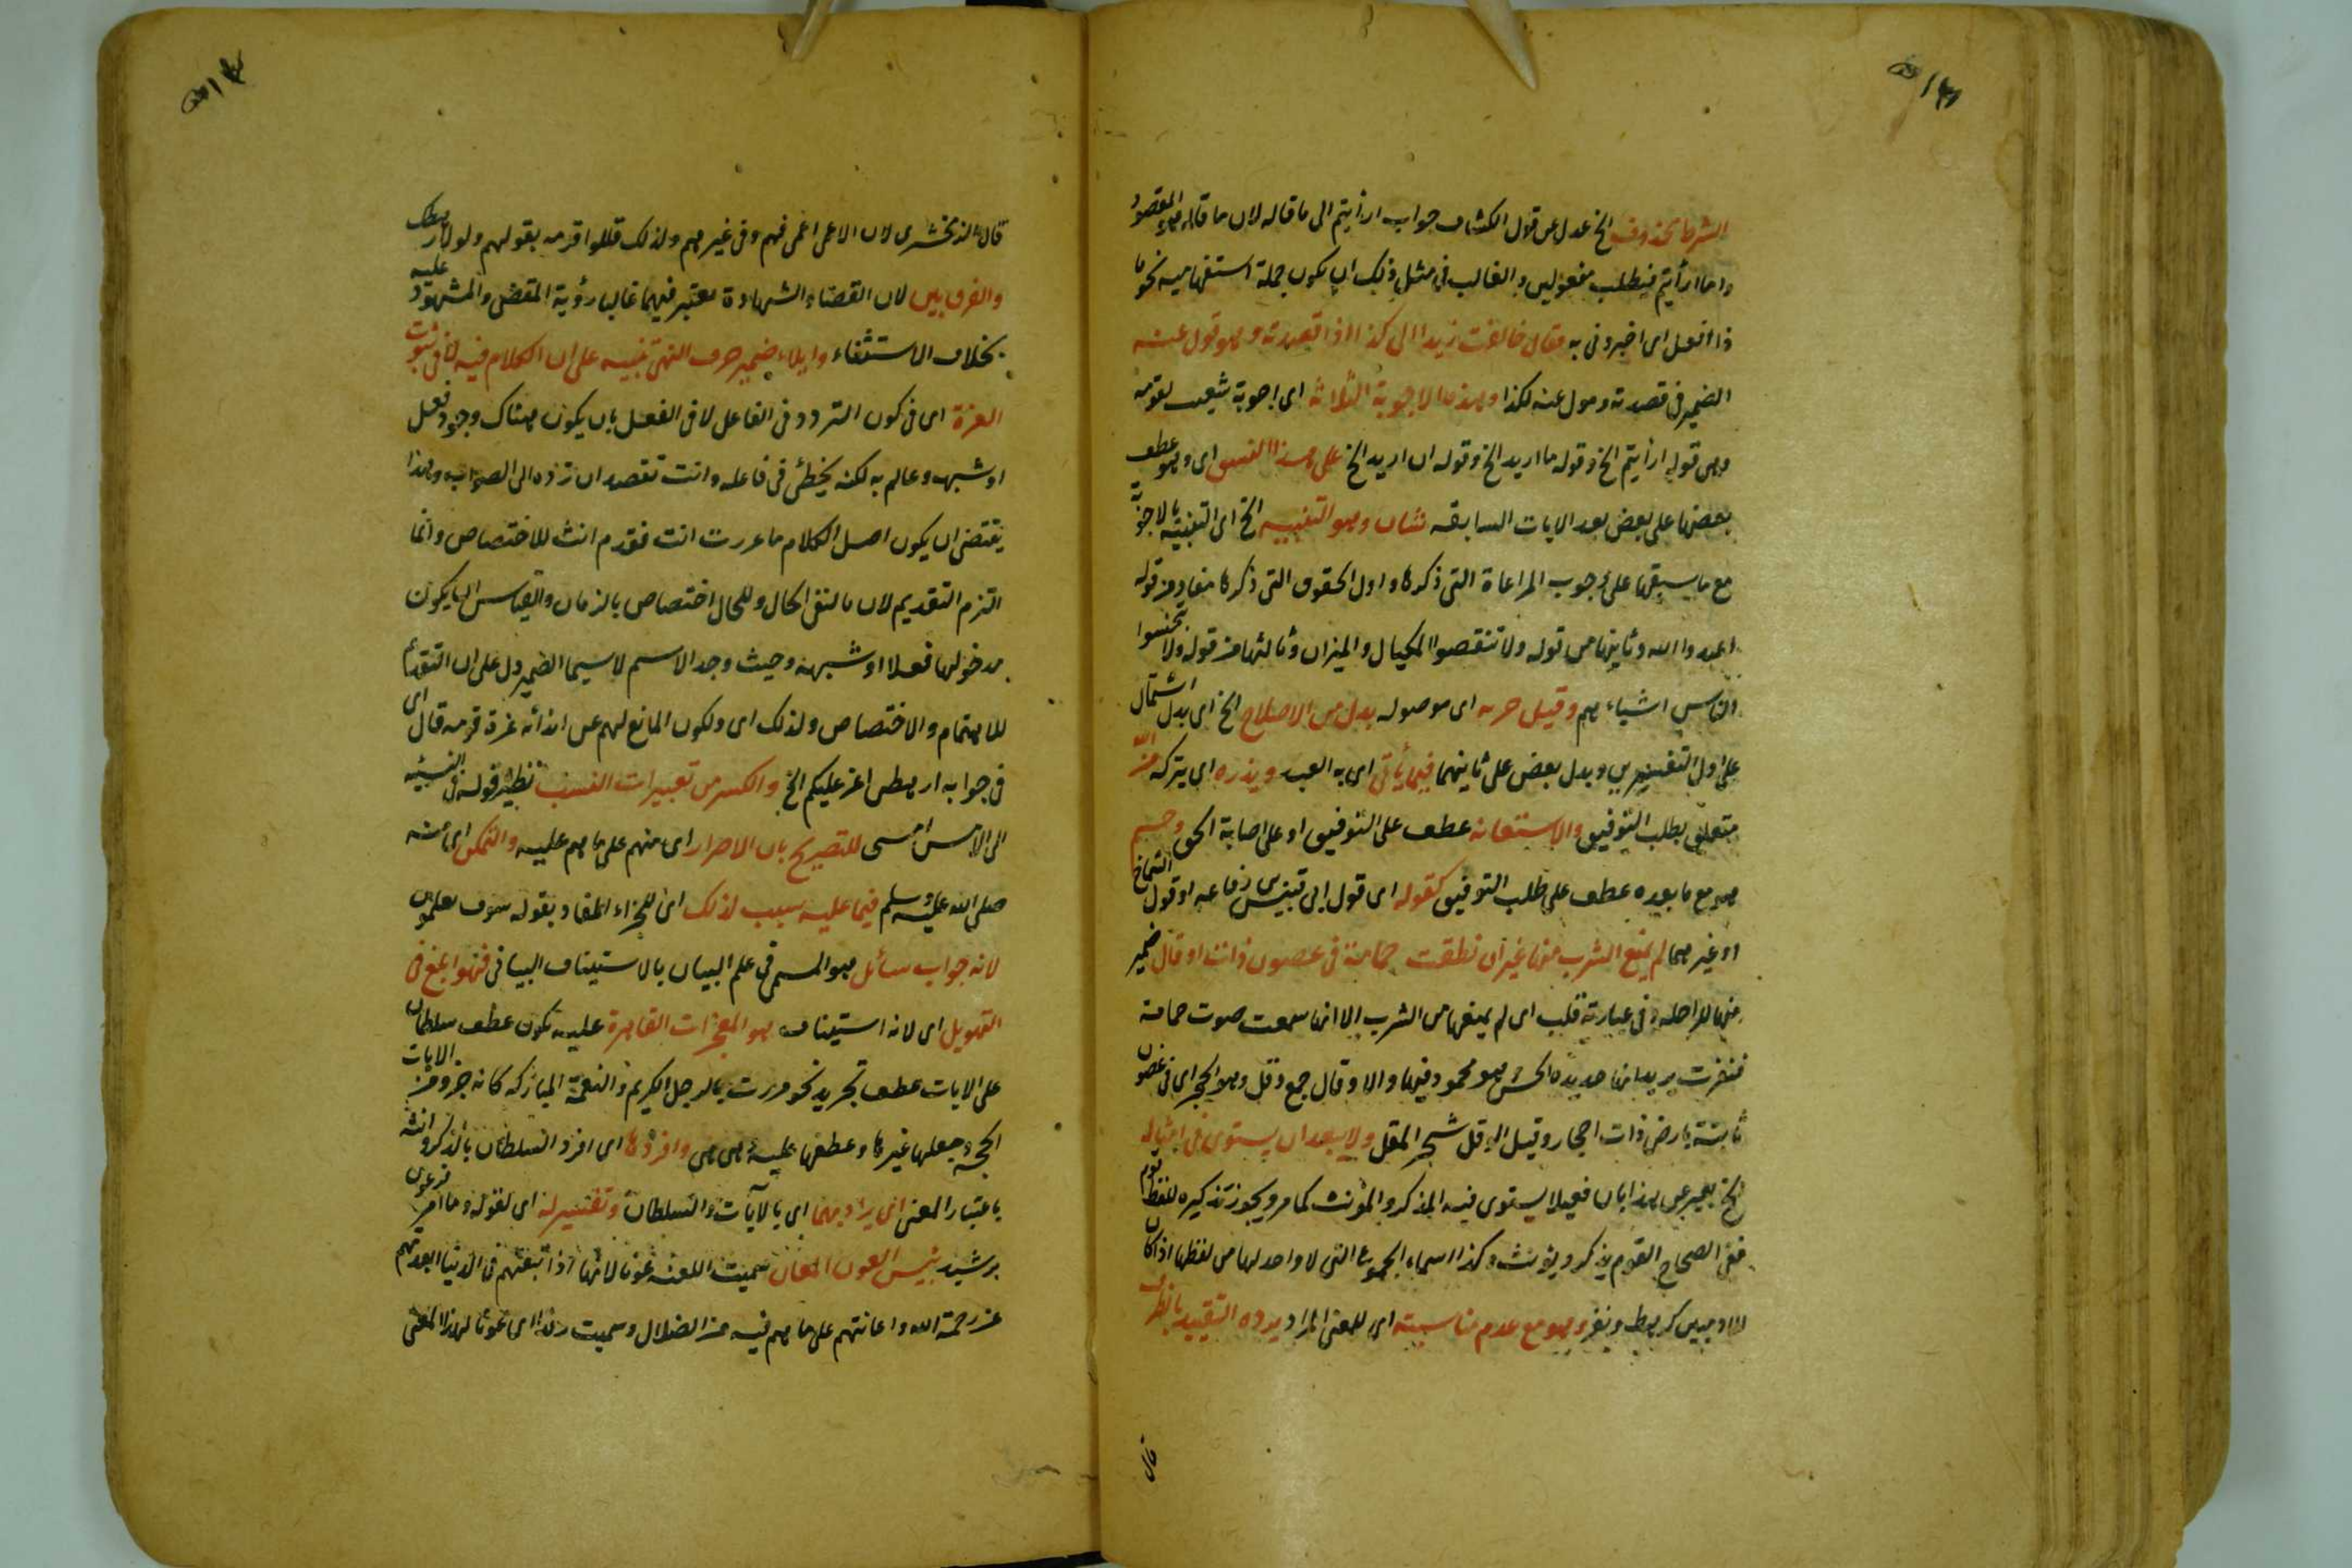 الشرط محذوف الخ عدل عن قول الكشاف جواب ارأيتم الى ما قاله لان ما قاله هو المقصود
واما ارأيتم فيطلب مفعولين والغالب فى مثل ذلك ان يكون جملة استفهامية نحو ما
ذا افعل اى اخبرونى به فقال خالفت زيدا الى كذا اذا قصدته وهو مول عنه
الضمير فى قصدته ومول عنه لكذا وهذه الاجوبة الثلاثة اى اجوبة شعيب لقومه
وهى قوله ارأيتم الخ وقوله ما اريد الخ وقوله ان اريد الخ على هذا النسق اى وهو عطف
بعضها على بعض بعد الايات السابقه شان وهو التنبيه الخ اى التنبيه بالاجوبة
مع ما سبقها على وجوب المراعاة التى ذكرها واول الحقوق التى ذكرها مفاد من قوله
اعبدوا الله وثانيها من قوله ولا تنقصوا المكيال والميزان وثالثها من قوله ولا تبخسوا
الناس اشياءهم وقيل خبريه اى موصوله بدل من الاصلاح الخ اى بدل اشتمال
على اول التفسيرين وبدل بعض على ثانيهما فيما يأتى اى به العبد ويذره اى يتركه من الله
متعلق بطلب التوفيق والاستعانه عطف على التوفيق او على اصابة الحق وحسم
هو مع ما بعده عطف على طلب التوفيق كقوله اى قول ابى قيس بن رفاعه او قول الشماخ
او غيرهما لم يمنع الشرب منها غير ان نطقت حمامة فى غصون ذات اوقال ضمير
منها للراحله وفى عبارته قلب اى لم يمنعها من الشرب الا انها سمعت صوت حمامة
فنفرت يريد انها حديدة الحس وهو محمود فيها والاوقال جمع وقل وهو الحجر اى فى غصون
ثابتة بارض ذات احجار وقيل الوقل شجر المقل ولا يبعد ان يستوى فى امثاله
الخ يعبر عن هذا بان فعيلا يستوى فيه المذكر والمؤنث كما مر ويجوز تذكيره للفظ قوم
ففى الصحاح القوم يذكر ويؤنث وكذا اسماء الجموع التى لا واحد لها من لفظها اذا كان
للادميين كرهط ونفر وهو مع عدم مناسبته اى للمعنى المراد يرده التقييد بالظرف
قال
قال الزمخشرى لان الاعمى اعمى فيهم وفى غيرهم ولذلك قللوا قومه بقولهم ولولا رهطك
والفرق بين لان القضاء والشهادة معتبر فيهما غالبا رؤية المقضى والمشهود عليه
بخلاف الاستنباء وايلاء ضمير حرف النفى تنبيه على ان الكلام فيه لا فى ثبوت
العزة اى فى كون التردد فى الفاعل لا فى الفعل بان يكون هناك وجود فعل
او شبهه وعالم به لكنه يخطئ فى فاعله وانت تقصد ان ترده الى الصواب وهذا
يقتضى ان يكون اصل الكلام ما عززت انت فقدم انت للاختصاص وانما
التزم التقديم لان ما لنفى الحال وللحال اختصاص بالزمان والقياس ان يكون
مدخولها فعلا او شبهه وحيث وجد الاسم لا سيما الضمير دل على ان التقديم
للاهتمام والاختصاص ولذلك اى ولكون المانع لهم عن ايذائه عزة قومه قال اى
فى جوابه ارهطى اعز عليكم الخ والكسر من تغييرات النسب نظير قوله فى النسبة
الى الامس امسى للتصريح بان الاصرار اى منهم على ما هم عليه والتمكن اى منه
صلى الله عليه وسلم فيما عليه سبب لذلك اى للجزاء المفاد بقوله سوف تعلمون
لانه جواب سائل وهو المسمى فى علم البيان بالاستيناف البيانى فهو ابلغ فى
التهويل اى لانه استيناف وهو المعجزات القاهرة عليه يكون عطف سلطان
على الايات عطف تجريد نحو مررت بالرجل الكريم والنعمة المباركه كانه جرد من الايات
الحجة وجعلها غيرها وعطفها عليه وهى هى وافردها اى افرد السلطان بالذكر وانثه
باعتبار المعنى اى يراد بهما اى بالآيات والسلطان وتفسير له اى لقوله وما امر فرعون
برشيد بئس العون المعان سميت اللعنة عونا لانها اذا تبعتهم فى الدنيا ابعدتهم
عن رحمة الله واعانتهم على ما هم فيه من الضلال وسميت رفدا اى عونا لهذا المعنى